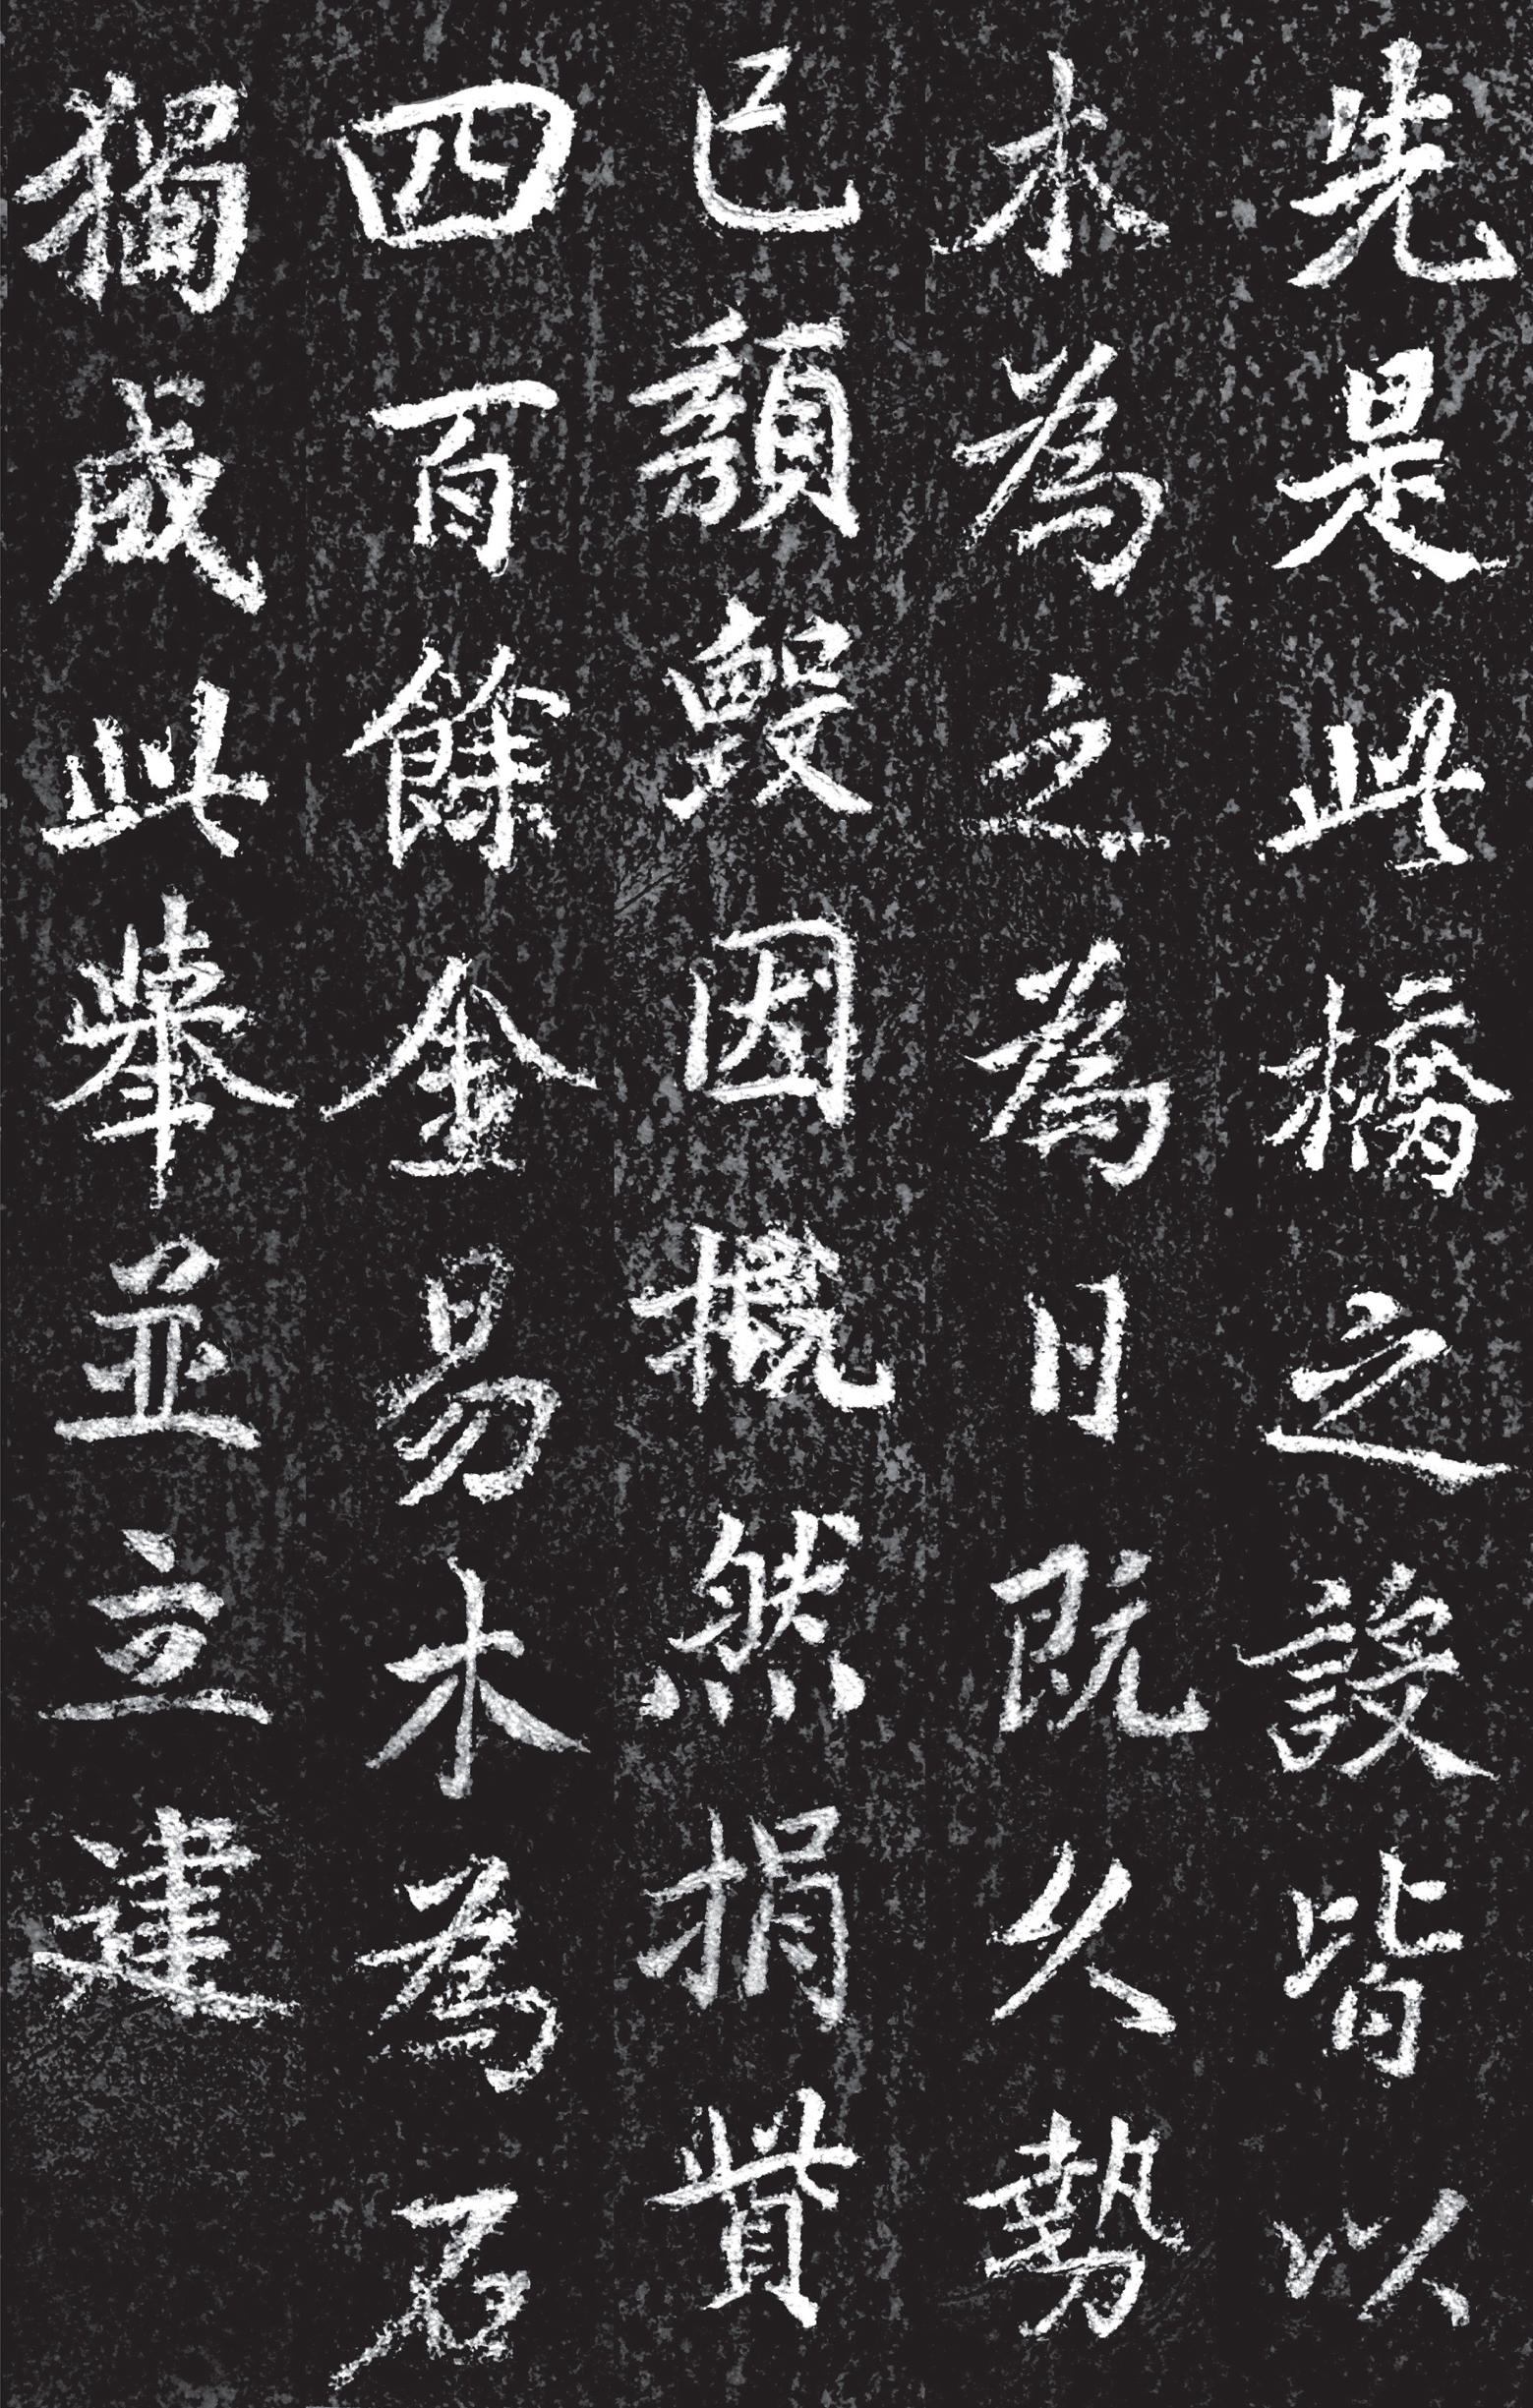 先是此橋之設皆以
木為之為日既久勢
已頹毀因慨然捐貲
四百餘金易木為石
獨成此舉並立建